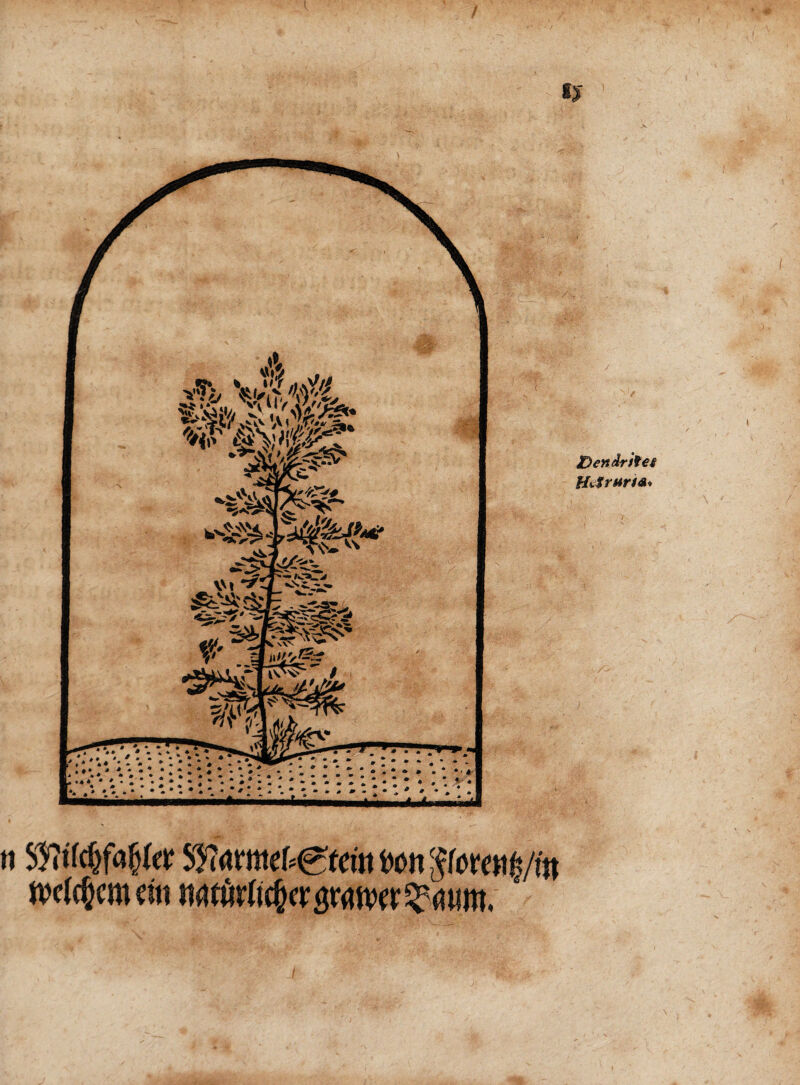 Dendrites
Hetruriæ.
n Milchfahler Marmel-Stein von Florentz/in
welchem ein natürlicher grawer Baum.